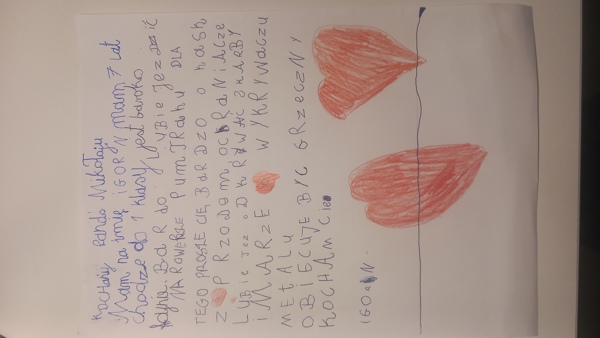 KOCHANY Panie Mikołaju
Mam na imię IGOR N mam 7 lat
chodze do 1 klasy jest bardzo
fajna. BaRdo LYBIE JEZdzić
NA ROWERZE PumTRaku DLA
TEGO PROSZE CIĘ BARDZO o kask
Z PRZODEM OCHRANIACZE
LYBIE TEZ ODKRYWAĆ SKARBY
i MARZE O WYKRYWACZU
METALU
OBIECUJE BYĆ GRZECZNY
KOCHAM CIE
IGOR N.